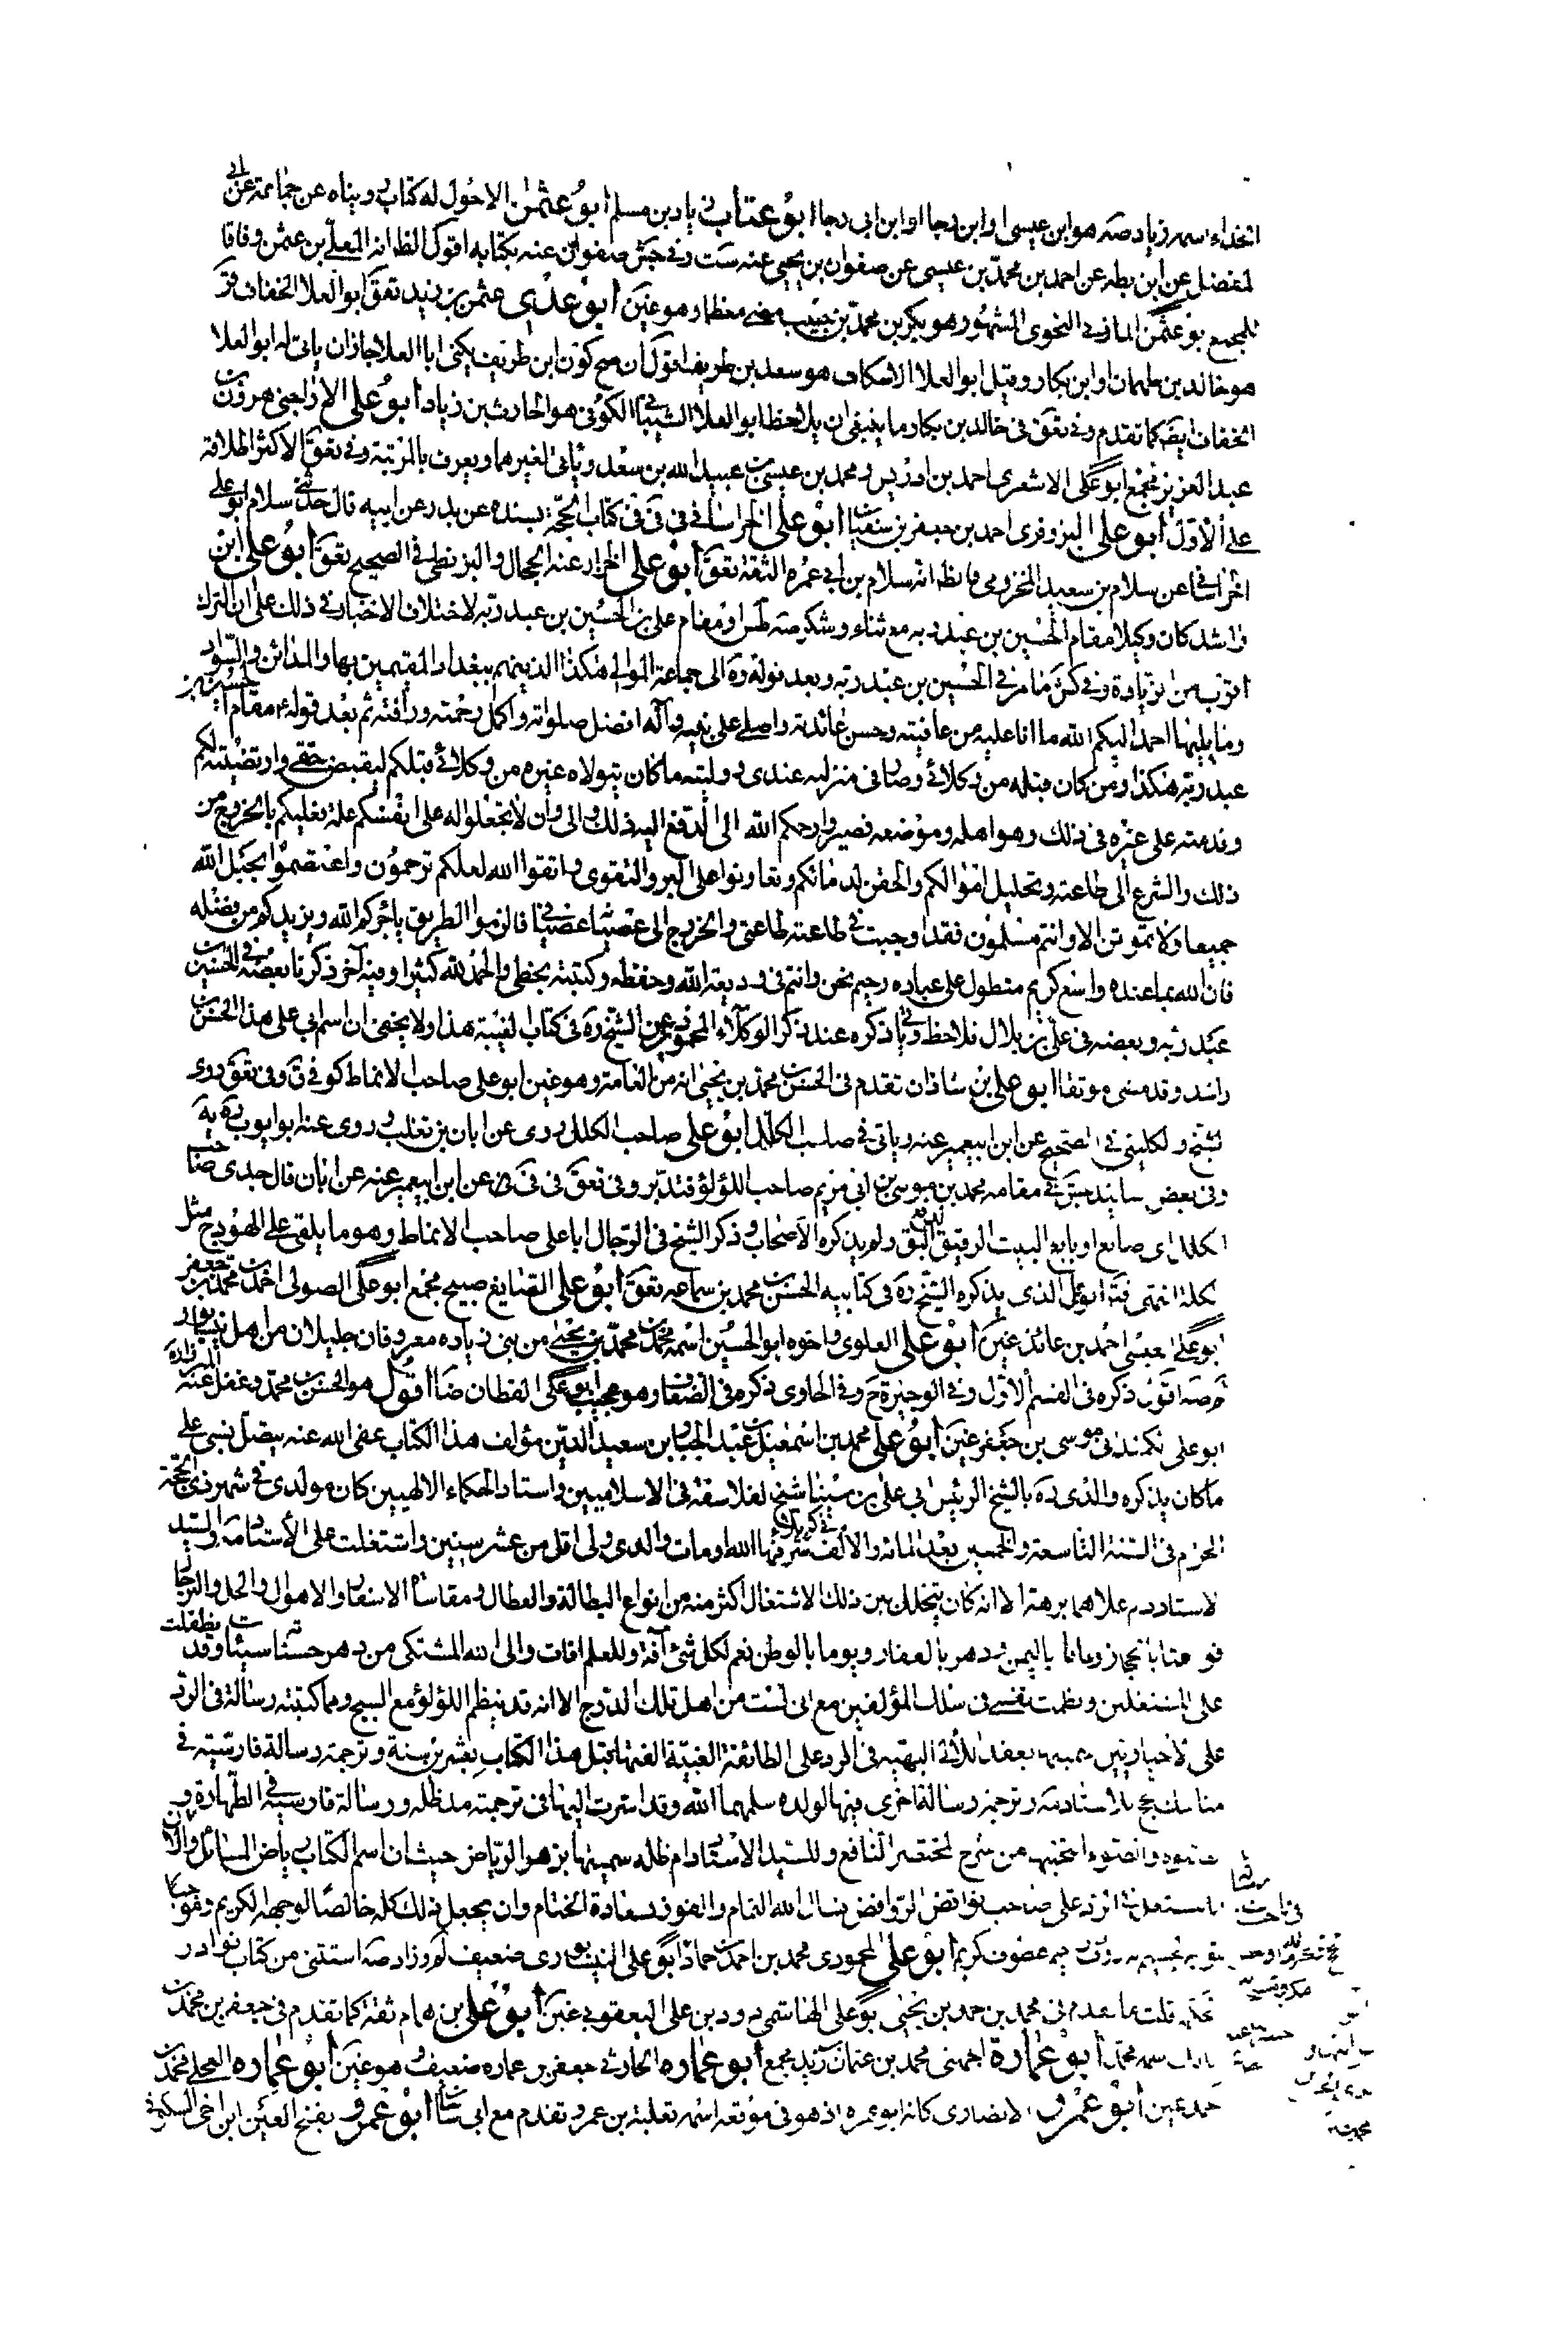 الحذاء اسمه زياد صه هو ابن عيسى او ابن رجا او ابن ابى رجا ابو عتاب زياد بن مسلم ابو عثمن الاحول له كتاب رويناه عن جماعة عن ابى
المفضل عن ابن بطه عن احمد بن محمد بن عيسى عن صفوان بن يحيى عنه ست وفى جش صفوان عنه بكتابه اقول الظ انه المعلى بن عثمن وفاقا
للمجمع بو عثمن المازنى النحوى المشهور وهو بكر بن محمد بن حبيب مضى معظما وهو غير ابو عدى عثمن بن زيد تعق ابو العلا الخفاف فر
هو خالد بن طهمان او ابن بكار وقيل ابو العلا الاسكاف هو سعد بن طريف اقول ان صح كون ابن طريف يكنى ابا العلا جاز ان ياتى له ابو العلا
الخفاف ايضا كما تقدم وفى تعق فى خالد بن بكار ما ينبغى ان يلاحظ ابو العلا الشيبانى الكوفى هو الحارث بن زياد ابو على الارانجى هرون بن
عبد العزيز مجمع ابو على الاشعرى احمد بن ادريس ومحمد بن عيسى بن عبد الله بن سعد وياتى لغيرهما ويعرف بالمرتبة وفى تعق الاكثر اطلاقه
على الاول ابو على البزوفرى احمد بن جعفر بن سفيان ابو على الخراسانى فى فى كتاب الحجة بسنده عن بدر عن ابيه قال حدثنى سلام ابو على
الخراسانى عن سلام بن سعيد المخزومى فالظ انه سلام بن ابى عمره الثقة تعق ابو على الخزاز عنه الجمال والبزنطى فى الصحيح تعق ابو على ابن
راشد كان وكيلا مقام الحسين بن عبد ربه مع ثناء وشكر صه طس اومقام على بن الحسين بن عبد ربه لاختلاف الاخبار فى ذلك على ان الترك
اقرب من الزيادة وفى كش ما مر فى الحسين بن عبد ربه وبعد قوله ره الى جماعة الموالى هكذا الذين هم ببغداد المقيمين بها والمدائن والسواد
وما يليها احمد اليكم الله ما انا عليه من عافيته وحسن عائدته واصلى على نبيه وآله افضل صلواته واكمل رحمته ورأفته ثم بعد قوله ع مقام الحسين بن
عبد ربه هكذا ومن كان قبله من وكلائى وصار فى منزلته عندى ووليته ما كان يتولاه غيره من وكلائى قبلكم ليقبض حقى وارتضيته لكم
وقدمته على غيره فى ذلك وهو اهله وموضعه فصيروا رحمكم الله الى الدفع اليه ذلك والى وان لا تجعلوا له على انفسكم علة فعليكم بالخروج من
ذلك والتسرع الى طاعته وتحليل اموالكم والحقن لدمائكم وتعاونوا على البر والتقوى واتقوا الله لعلكم ترحمون واعتصموا بحبل الله
جميعا ولا تموتن الا وانتم مسلمون فقد اوجبت فى طاعته طاعتى والخروج الى عصيانه عصيانى فالزموا الطريق ياجركم الله ويزيدكم من فضله
فان الله بما عنده واسع كريم متطول على عباده رحيم نحن وانتم فى وديعة الله وحفظه وكتبته بخطى والحمد لله كثيرا وفيه آخر ذكرنا بعضه فى الحسين بن
عبد ربه وبعضه فى على بن بلال فلاحظ وياتى ذكره عند ذكر الوكلاء المحمودين عن الشيخ ره فى كتاب الغيبة هذا ولا يخفى ان اسم ابى على هذا الحسن بن
راشد وقد مضى موثقا ابو على بن شاذان تقدم فى الحسن بن محمد بن يحيى انه من العامة وهو غير ابو على صاحب الانماط كوفى ق وفى تعق روى
الشيخ والكلينى فى الصحيح عن ابن ابى عمير عنه وياتى فى صاحب الكلل ابو على صاحب الكلل روى عن ابان بن تغلب وروى عنه ابو ايوب ره به
وفى بعض اسانيد جش فى مقامه محمد بن موسى بن ابى مريم صاحب اللؤلؤ فتدبر وفى تعق فى فى عن ابن ابى عمير عنه عن ابان قال جدى صاحب
الكلل اى صانع او بايع البيت الرقيق للبق ولم يذكره الاصحاب وذكر الشيخ فى الرجال ابا على صاحب الانماط وهو ما يلقى على الهودج مثل
الكلة انتهى فتامل الذى يذكره الشيخ ره فى كتابيه الحسن بن محمد بن سماعه تعق ابو على الصايغ صبيح مجمع ابو على الصولى احمد بن محمد بن جعفر
ابو على العبسى احمد بن عائذ غير ابو على العلوى واخوه ابو الحسين اسمه محمد بن محمد بن يحيى من بنى زباده معروفان جليلان من اهل نيسابور
صه اقول ذكره فى القسم الاول وفى الوجيزة ح وفى الحاوى ذكره فى الضعفاء وهو عجيب ابو على القطان ضا اقول هو الحسن بن محمد وغفل عنه
ابو على مكرد فى موسى بن جعفر غير ابو على محمد بن اسمعيل بن عبد الجبار بن سعد الدين مؤلف هذا الكتاب عفى الله عنه يتصل نسبى على
ما كان يذكره والدى ره بالشيخ الرئيس ابى على بن سينا شيخ الفلاسفة فى الاسلاميين واستاد الحكماء الالهيين كان مولدى فى شهر ذى الحجة
الحرام فى السنة التاسعة والخمسين بعد المائة والالف فى كربلا شرفها الله ومات والدى ولى اقل من عشر سنين واشتغلت على الاستاد العلامة والسيد
الاستاد دام علاهما برهة الا انه كان يتخلل بين ذلك الاشتغال اكثر منه من انواع البطالة والعطال ومقاساة الاسفار والاهوال والحل والترحال
فيوما بالحجاز ويوما باليمن ودهر بالعقار ويوما بالوطن نعم لكل شئ آفة وللعلم افات والى الله المشتكى من دهر حسناته سيئات وقد تطفلت
على المشتغلين ونظمت نفسى فى سلك المؤلفين مع انى لست من اهل تلك الدرج الا انه قد ينظم اللؤلؤ مع السبج ومما كتبته رسالة فى الرد
على الاخباريين سميتها بعقد اللآلى البهية فى الرد على الطائفة الغبية الفتها قبل هذا الكتاب بعشرين سنة وترجمة رسالة فارسية فى
مناسك حج للاستاد مه وترجمة رسالة اخرى فيها لولده سلمهما الله وقد اشرت اليها فى ترجمته مد ظله ورسالة فارسية فى الطهارة و
الصلوة والصوم انتخبتها من شرح المختصر النافع وللسيد الاستاد دام ظله سميتها بزهر الرياض حيث ان اسم الكتاب رياض المسائل والان
انا مشتغل فى الرد على صاحب نواقض الروافض نسال الله التمام والفوز بسعادة الختام وان يجعل ذلك كله خالصا لوجهه الكريم وموجبا
عطوف كريم ابو على المحمودى محمد بن احمد بن حماد ابو على النيسابورى ضعيف لم وزاد صه استثنى من كتاب نوادر
الحكمة قلت ما تقدم فى محمد بن احمد بن يحيى ابو على الهاشمى داود بن على اليعقوبى غير ابو على بن همام ثقة كما تقدم فى جعفر بن محمد بن
مالك اسمه محمد ابو عمارة الجهنى محمد بن عثمان زيد مجمع ابو عماره الحارثى جعفر بن عماره ضعيف هو غير ابو عماره العجلى محمد بن
احمد غير ابو عمرو الانصارى كانه ابو عمره اذ هو فى موقعه اسمه ثعلبة بن عمرو تقدم مع ابى سنان ابو عمرو بفتح العين ابن اخى السكونى